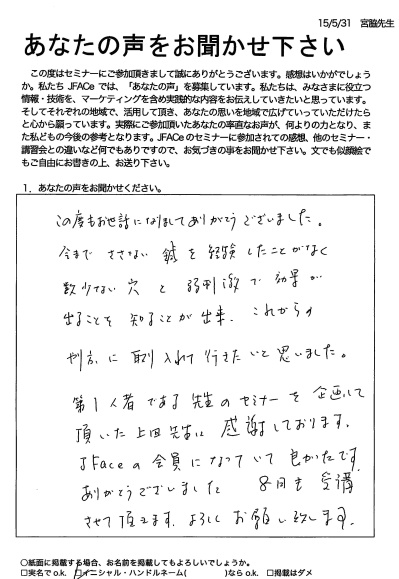 15/5/31 宮脇先生
あなたの声をお聞かせ下さい
この度はセミナーにご参加頂きまして誠にありがとうございます。感想はいかがでしょう
か。私たち JFACe では、「あなたの声」を募集しています。私たちは、みなさまに役立つ
情報・技術を、マーケティングを含め実践的な内容をお伝えしていきたいと思っています。
そしてそれぞれの地域で、活用して頂き、あなたの思いを地域で広げていっていただけたら
と心から願っています。実際にご参加頂いたあなたの率直なお声が、何よりの力となり、ま
た私どもの今後の参考となります。JFACeのセミナーに参加されての感想、他のセミナー・
講習会との違いなど何でもありですので、お気づきの事をお聞かせ下さい。文でも似顔絵で
もご自由にお書きの上、お送り下さい。
1．あなたの声をお聞かせください。
この度もお世話になりましてありがとうございました。
今まで ささない 鍼 を 経験 したことがなく
数少ない 穴 と 弱刺激 で 効果 が
出ることを 知ることが 出来、これからの
やり方 に 取り入れて 行きたいと 思いました。
第1人者 である 先生 のセミナー を 企画して
頂いた 上田 先生に 感謝しております。
JFaceの 会員 になっていて 良かったです。
ありがとうございました 8日も 受講
させて 頂きます。よろしく お願い 致します。
○紙面に掲載する場合、お名前を掲載してもよろしいでしょうか。
□実名でo.k. □イニシャル・ハンドルネーム( )ならo.k. □掲載はダメ